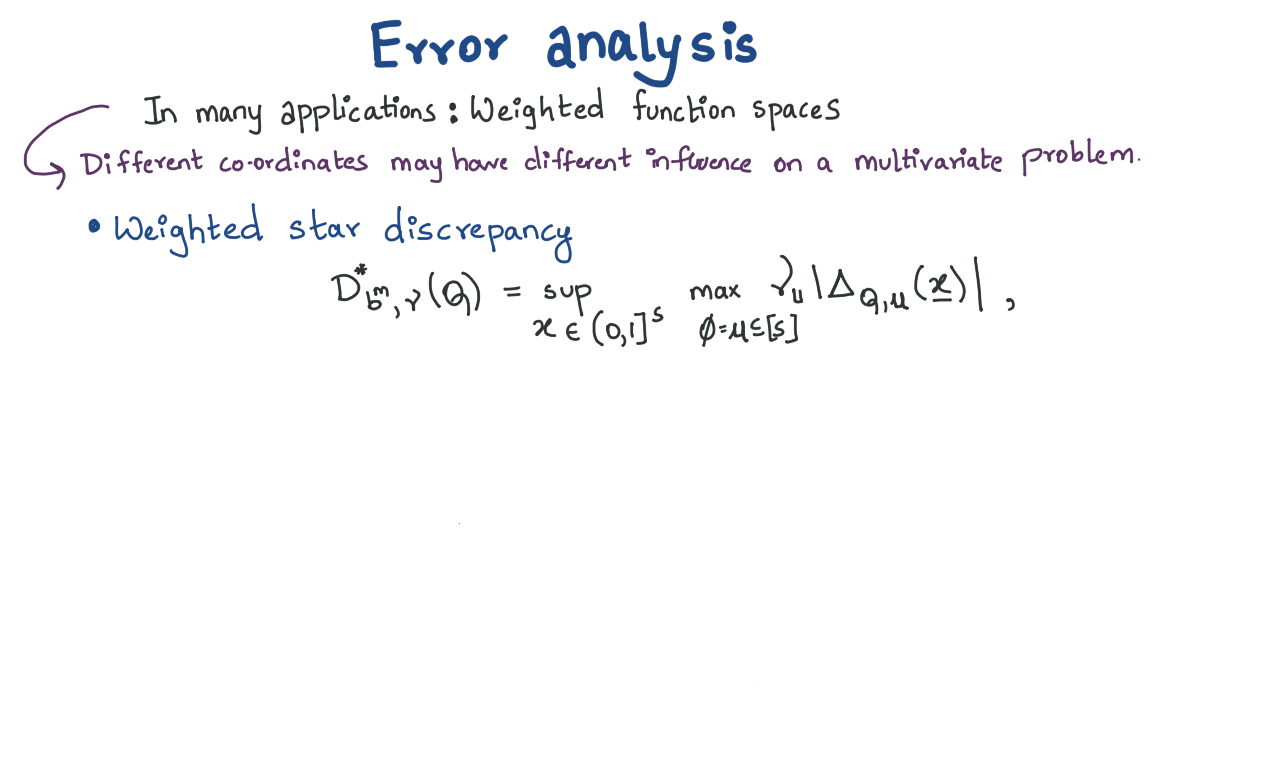 Error analysis
In many applications : Weighted function spaces
Different co-ordinates may have different influence on a multivariate problem.
• Weighted star discrepancy
D*_{b^m,γ}(Q) = sup_{x ∈ (0,1]^s} max_{∅=u⊆[s]} γ_u |Δ_{Q,u}(x)| ,